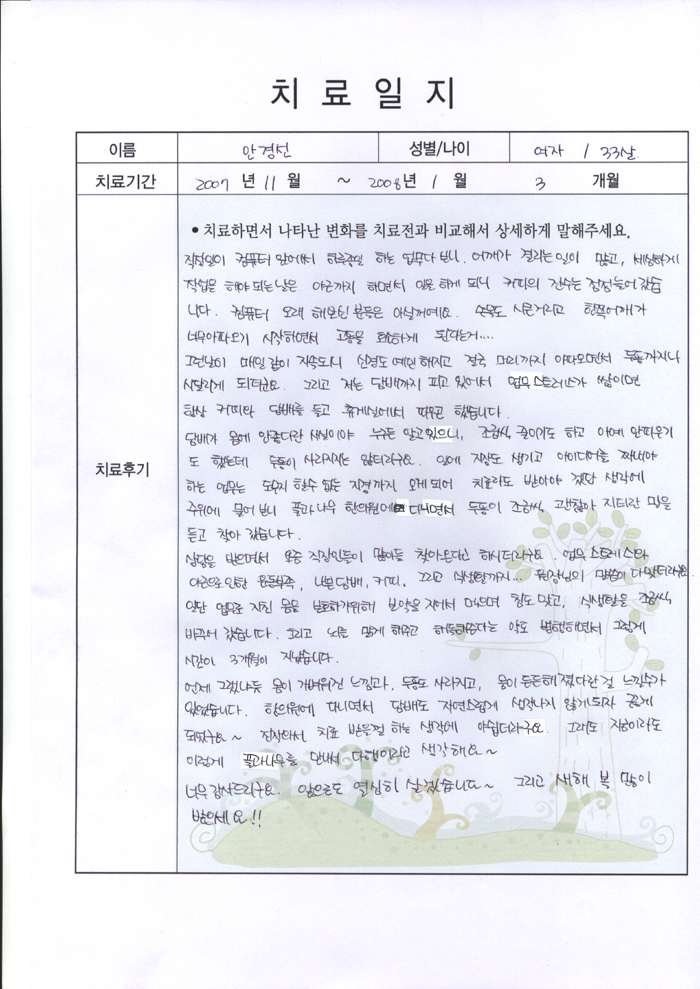 치 료 일 지
이름 안경선 성별/나이 여자 / 33살
치료기간 2007 년 11 월 ~ 2008년 1 월 3 개월
치료후기
• 치료하면서 나타난 변화를 치료전과 비교해서 상세하게 말해주세요.
직장일이 컴퓨터 앞에서 하루종일 하는 업무다 보니. 어깨가 결리는일이 많고, 세밀하게
작업을 해야 되는날은 야근까지 하면서 일을 하게 되니 커피의 잔수는 점점늘어 갔습
니다. 컴퓨터 오래 해보신 분들은 아실꺼예요. 손목도 시큰거리고 한쪽어깨가
너무아파오기 시작하면서 고통을 호소하게 된다는거....
그런날이 매일같이 지속되니 신경도 예민해지고 결국 머리까지 아파오면서 두통까지나
시달리게 되더군요. 그리고 저는 담배까지 피고 있어서 업무 스트레스가 쌓이면
항상 커피와 담배를 들고 휴게실에서 피우곤 했습니다.
담배가 몸에 안좋다란 사실이야 누구든 알고있으니, 조금씩 줄이기도 하고 아예 안피우기
도 했는데 두통이 사라지지는 않더라구요. 일에 지장도 생기고 아이디어를 짜내야
하는 업무는 도무지 할수 없는 지경까지 오게 되어 치료라도 받아야 겠단 생각에
주위에 물어 보니 풀과나무 한의원에 다니면서 두통이 조금씩 괜찮아 지더란 말을
듣고 찾아 갔습니다.
상담을 받으면서 요즘 직장인들이 많이들 찾아온다고 하시더라구요. 업무 스트레스와
야근으로인한 운동부족, 나쁜담배, 커피, 그리고 식생활까지... 원장님의 말씀이 다 맞더라구요.
일단 업무로 지친 몸을 보호하기위해 보약을 지어서 먹으며 침도 맞고, 식생활을 조금씩
바꾸어 갔습니다. 그리고 뇌를 맑게 해주고 하는 약도 병행하면서 그렇게
시간이 3개월이 지났습니다.
언제 그랬냐는듯 몸이 가벼워진 느낌과, 두통도 사라지고, 몸이 튼튼해 졌다란걸 느낄수가
있었습니다. 한의원에 다니면서 담배도 자연스럽게 생각나지 않게되자 끊게
되었구요~ 진작와서 치료 받을껄 하는 생각에 아쉽더라구요. 그래도 지금이라도
이렇게 풀과나무를 만나서 다행이라고 생각해요~
너무 감사드리구요. 앞으로도 열심히 살겠습니다~ 그리고 새해 복 많이
받으세요!!